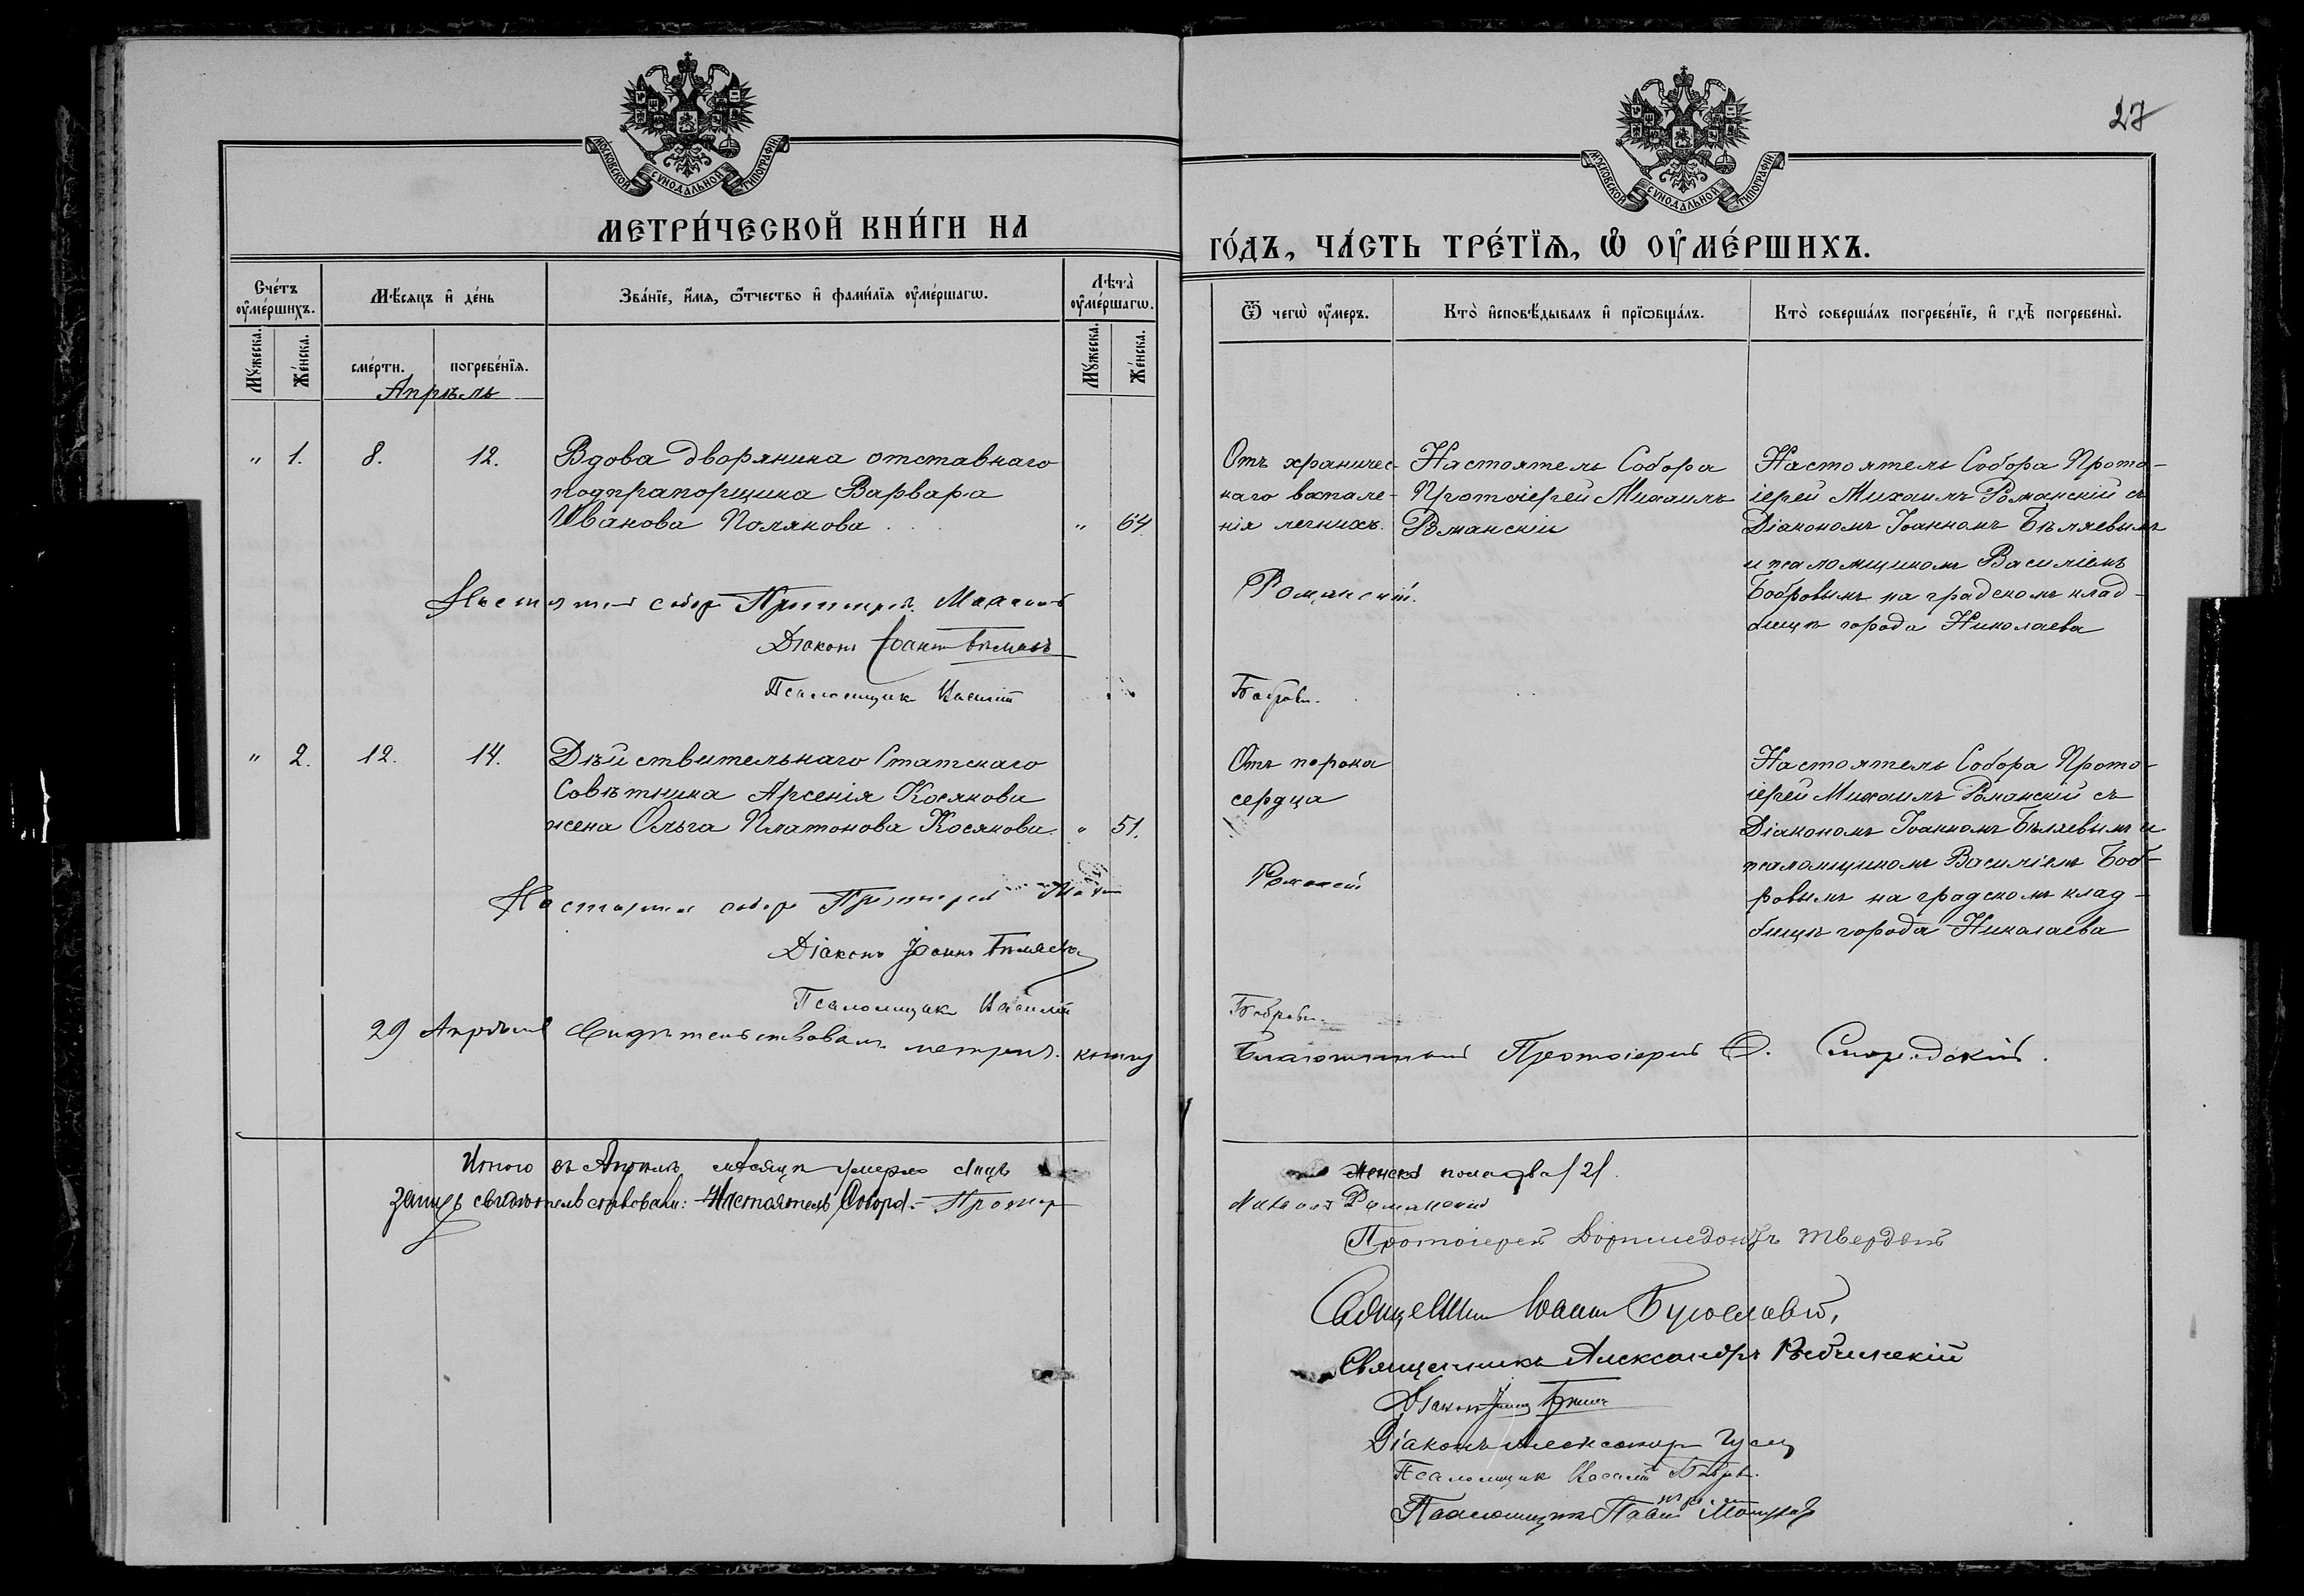 МОСКОВСКОЙ СѴНОДАЛЬНОЙ ТИПОГРАФІИ
МЕТРИ́ЧЕСКОЙ КНИ́ГИ НА
Сче́тъ оу҆ме́ршихъ.
Мѣ́сѧцъ и҆ де́нь
Зва́нїе, и҆́мѧ, ѻ҆́тчество и҆ фами́лїѧ оу҆ме́ршагѡ.
Лѣ́та оу҆ме́ршагѡ.
Мꙋ́жеска.
Же́нска.
сме́рти.
погребе́нїѧ.
Мꙋ́жеска.
Же́нска.
Апрѣль
" 1. 8. 12. Вдова дворянина отставнаго
подпрапорщика Варвара
Иванова Полякова " 64.
Настоятель собора Протоіерей Михаилъ
Діаконъ Іоаннъ Бѣляевъ
Псаломщикъ Василій
" 2. 12. 14. Дѣйствительнаго Статскаго
Совѣтника Арсенія Косякова
жена Ольга Платонова Косякова " 51.
Настоятель собора Протоіерей
Діаконъ Іоаннъ Бѣляевъ
Псаломщикъ Василій
29 Апрѣля Свидѣтельствовалъ метрич. книгу
Итого въ Апрѣлѣ мѣсяцѣ умерло лицъ
Запись свидѣтельствовали: Настоятель Собора Протоіер
27
МОСКОВСКОЙ СѴНОДАЛЬНОЙ ТИПОГРАФІИ
ГО́ДЪ, ЧА́СТЬ ТРЕ́ТЇѦ, Ѡ҆ ОУ҆МЕ́РШИХЪ.
Ѿ чегѡ̀ оу҆́меръ.
Кто̀ и҆сповѣ́дывалъ и҆ прїѡбща́лъ.
Кто̀ соверша́лъ погребе́нїе, и҆ гдѣ̀ погребены̀.
Отъ храничес-
каго воспале-
нія легкихъ.
Настоятель Собора
Протоіерей Михаилъ
Романскій
Настоятель Собора Прото-
іерей Михаилъ Романскій съ
Діакономъ Іоанномъ Бѣляевымъ
и псаломщикомъ Василіемъ
Бобровымъ на градскомъ клад-
бищѣ города Николаева
Романскій.
Бобровъ.
Отъ порока
сердца
Настоятель Собора Прото-
іерей Михаилъ Романскій съ
Діакономъ Іоанномъ Бѣляевымъ и
псаломщикомъ Василіемъ Боб-
ровымъ на градскомъ клад-
бищѣ города Николаева
Романскій
Бобровъ.
Благочинный Протоіерей
женска пола два /2/.
Михаилъ Романскій
Протоіерей Доримедонтъ Твердый
Священникъ Іоаннъ
Священникъ Александръ
Діаконъ Іоаннъ Бѣляевъ
Діаконъ Александръ
Псаломщикъ Василій Бобровъ.
Псаломщикъ